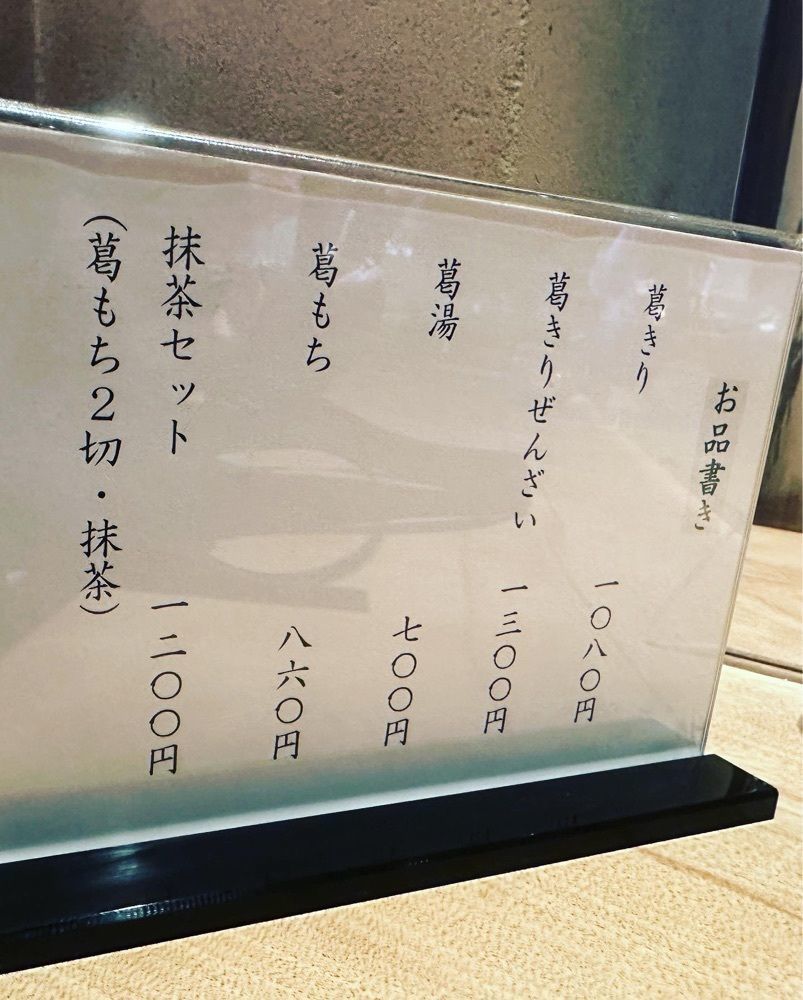 お品書き
葛きり 一〇八〇円
葛きりぜんざい 一三〇〇円
葛湯 七〇〇円
葛もち 八六〇円
抹茶セット 一二〇〇円
(葛もち2切・抹茶)